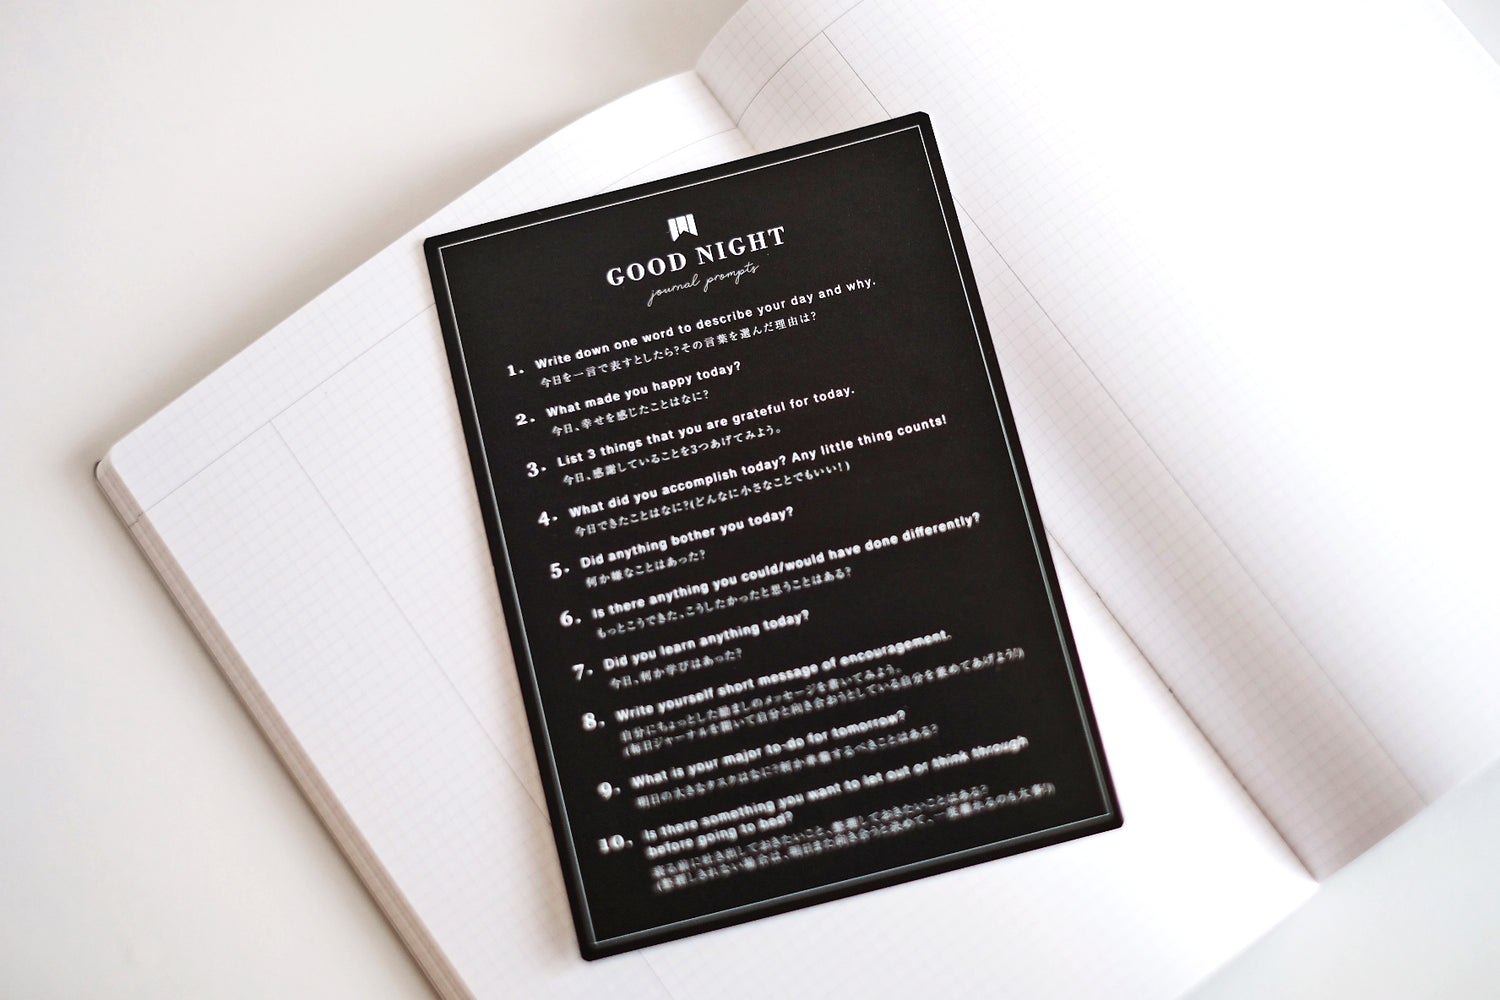 GOOD NIGHT
journal prompts
1. Write down one word to describe your day and why.
今日を一言で表すとしたら?その言葉を選んだ理由は?
2. What made you happy today?
今日、幸せを感じたことはなに?
3. List 3 things that you are grateful for today.
今日、感謝していることを3つあげてみよう。
4. What did you accomplish today? Any little thing counts!
今日できたことはなに?(どんなに小さなことでもいい!)
5. Did anything bother you today?
何か嫌なことはあった?
6. Is there anything you could/would have done differently?
もっとこうできた、こうしたかったと思うことはある?
7. Did you learn anything today?
今日、何か学びはあった?
8. Write yourself short message of encouragement.
自分にちょっとした励ましのメッセージを書いてみよう。
(毎日ジャーナルを開いて自分と向き合おうとしている自分を褒めてあげよう!)
9. What is your major to-do for tomorrow?
明日の大きなタスクはなに?何か準備するべきことはある?
10. Is there something you want to let out or think through
before going to bed?
寝る前に吐き出しておきたいこと、整理しておきたいことはある?